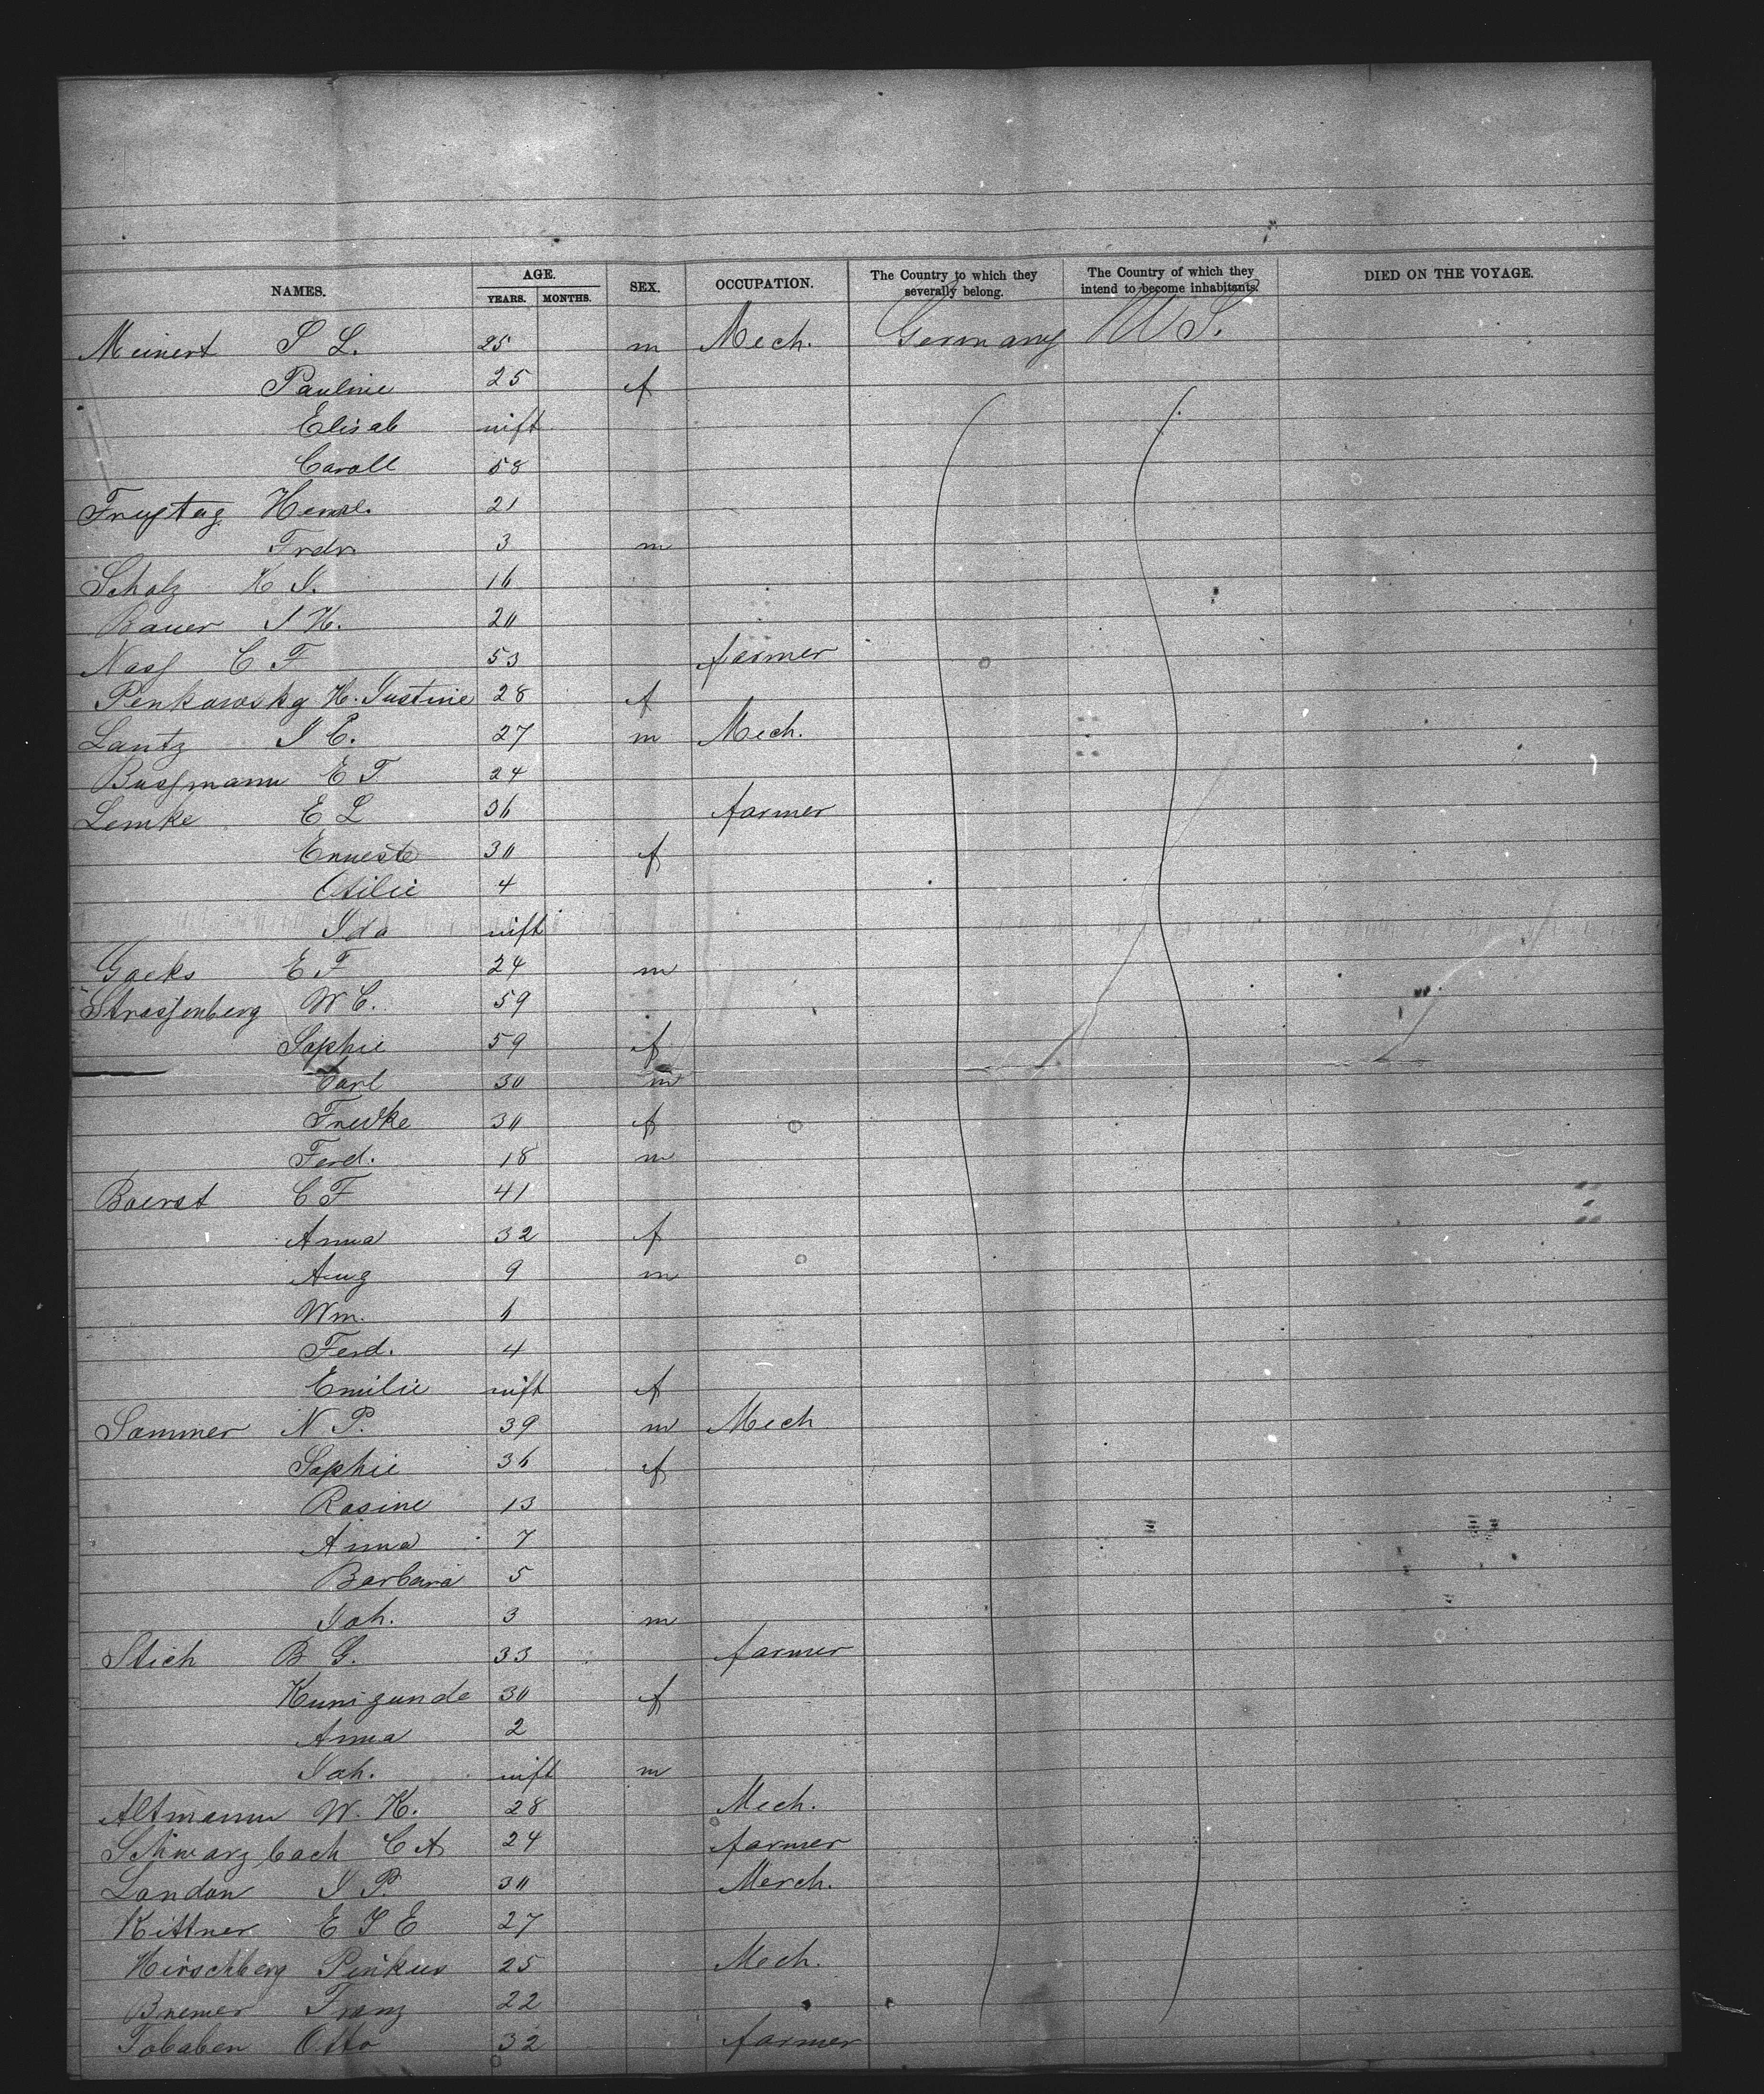 NAMES. AGE. YEARS. MONTHS. SEX. OCCUPATION. The Country to which they severally belong. The Country of which they intend to become inhabitants. DIED ON THE VOYAGE.
Meinert S L. 25 m Mech. Germany U S.
Pauline 25 f
Elisab inft
Caroll 58
Freytag Henre. 21
Frdr. 3 m
Scholz H J. 16
Bauer J H. 20
Nass C F 53 farmer
Penkowsky H. Justine 28 f
Lantz J C. 27 m Mech.
Bussmann E F 24
Lemke E L 36 farmer
Erneste 30 f
Otilie 4
Ida inft
Gaeks E F 24 m
Strassenberg W C. 59
Sophie 59 f
Carl 30 m
Fredke 30 f
Ferd. 18 m
Boerst C F 41
Anna 32 f
Aug 9 m
Wm. 6
Ferd. 4
Emilie inft f
Sommer N P. 39 m Mech
Sophie 36 f
Rosine 13
Anna 7
Barbara 5
Joh. 3 m
Stich B G. 33 farmer
Kunigunde 30 f
Anna 2
Joh. inft m
Altmann W. K. 28 Mech.
Schwarzbach C A 24 farmer
London J P. 30 Merch.
Kittner E J E 27
Hirschberg Pinkus 25 Mech.
Bremer Franz 22
Tobaben Otto 32 farmer